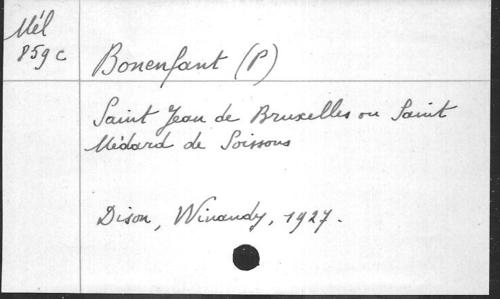 Mél
859 c
Bonenfant (P)
Saint Jean de Bruxelles ou Saint
Médard de Soissons
Dison, Winandy, 1927.